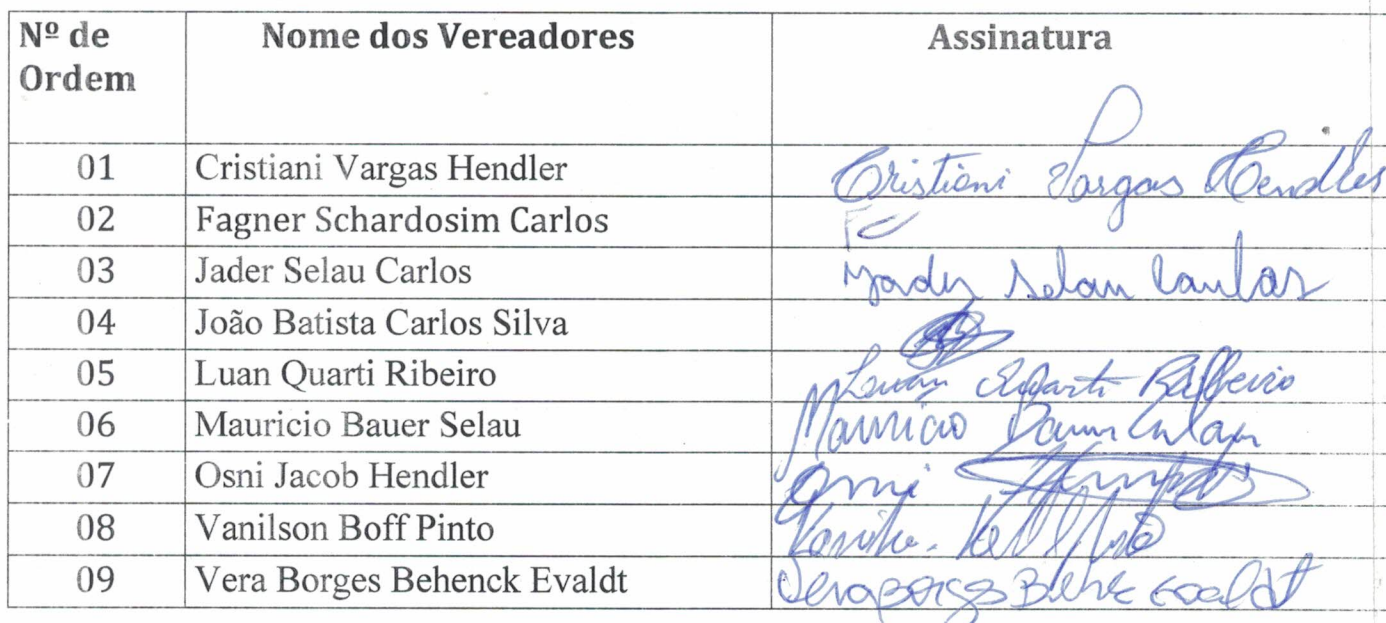 Nº de Ordem Nome dos Vereadores Assinatura
01 Cristiani Vargas Hendler Cristiani Vargas Hendler
02 Fagner Schardosim Carlos FC
03 Jader Selau Carlos Jader Selau Carlos
04 João Batista Carlos Silva
05 Luan Quarti Ribeiro Luan Quarti Ribeiro
06 Mauricio Bauer Selau Mauricio Bauer
07 Osni Jacob Hendler Osni
08 Vanilson Boff Pinto
09 Vera Borges Behenck Evaldt Vera Borges Behenck Evaldt